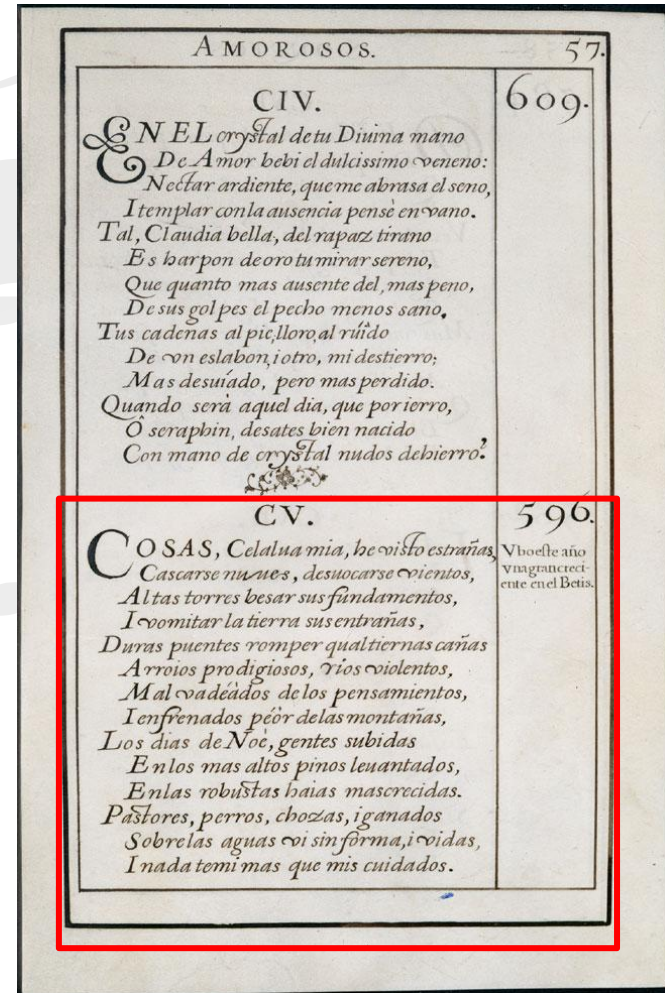 AMOROSOS. 57.
CIV. 609.
EN EL crystal de tu Diuina mano
De Amor bebi el dulcissimo veneno:
Nectar ardiente, que me abrasa el seno,
I templar con la ausencia pensè en vano.
Tal, Claudia bella, del rapaz tirano
Es harpon de oro tu mirar sereno,
Que quanto mas ausente del, mas peno,
De sus golpes el pecho menos sano.
Tus cadenas al pie, lloro, al rúìdo
De vn eslabon, i otro, mi destierro;
Mas desuíado, pero mas perdido.
Quando serà aquel dia, que por ierro,
Ô seraphin, desates bien nacido
Con mano de crystal nudos de hierro?
CV. 596.
COSAS, Celalua mia, he visto estrañas,
Cascarse nuues, desuocarse vientos,
Altas torres besar sus fundamentos,
I vomitar la tierra sus entrañas,
Duras puentes romper qual tiernas cañas
Arroios prodigiosos, ríos violentos,
Mal vadéàdos de los pensamientos,
I enfrenados péòr de las montañas,
Los dias de Noè, gentes subidas
En los mas altos pinos leuantados,
En las robustas haias mas crecidas.
Pastores, perros, chozas, i ganados
Sobre las aguas vi sin forma, i vidas,
I nada temi mas que mis cuidados.
Vbo este año
vna gran creci-
ente en el Betis.